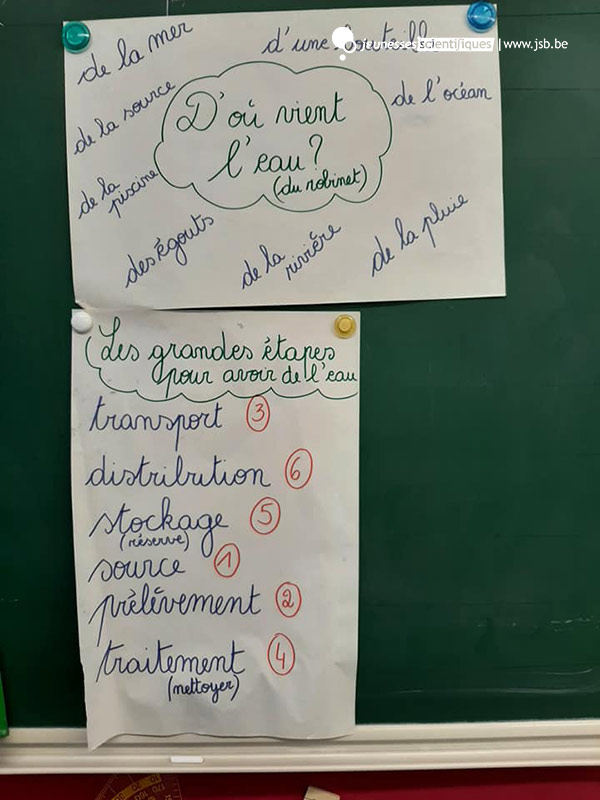 jeunesses scientifiques | www.jsb.be
de la mer
d'une bouteille
de la source
D'où vient
de l'océan
l'eau?
(du robinet)
de la
piscine
des égouts
de la
rivière
de la pluie
Les grandes étapes
pour avoir de l'eau
transport 3
distribution 6
stockage 5
(réserve)
source 1
prélèvement 2
traitement 4
(nettoyer)